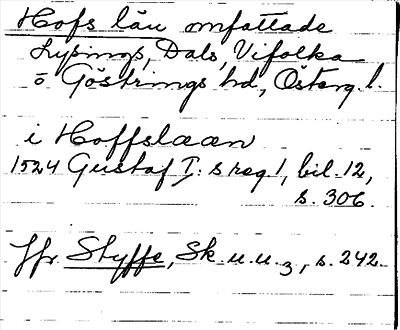 Hofs län omfattade
Lysings, Dals, Vifolka
o Göstrings hd, Österg. l.
i Hoffslaan
1524 Gustaf I:s reg. 1, bil. 12,
s. 306.
Jfr Styffe, Sk. u. u. 3, s. 242.